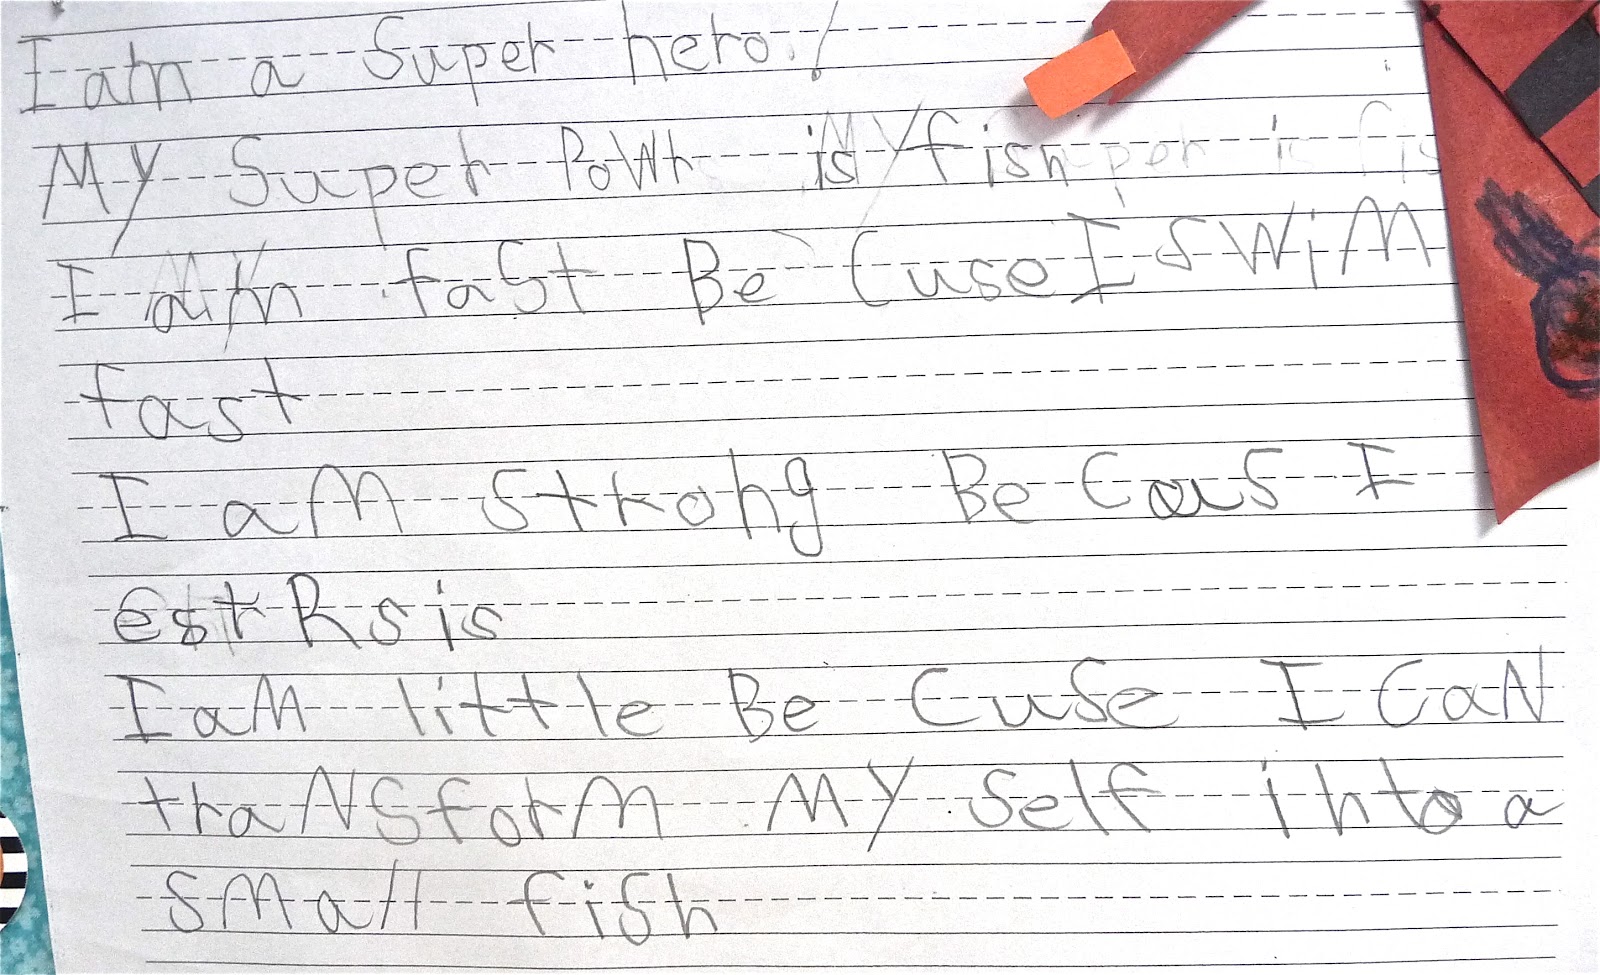 I am a Super hero!
My Super Powr is fish
I am fast Be Cuse I swiM
fast
I aM strong Be Caus I
estRsis
I aM little Be CuSe I CaN
traNSforM MY Self into a
sMall fiSh